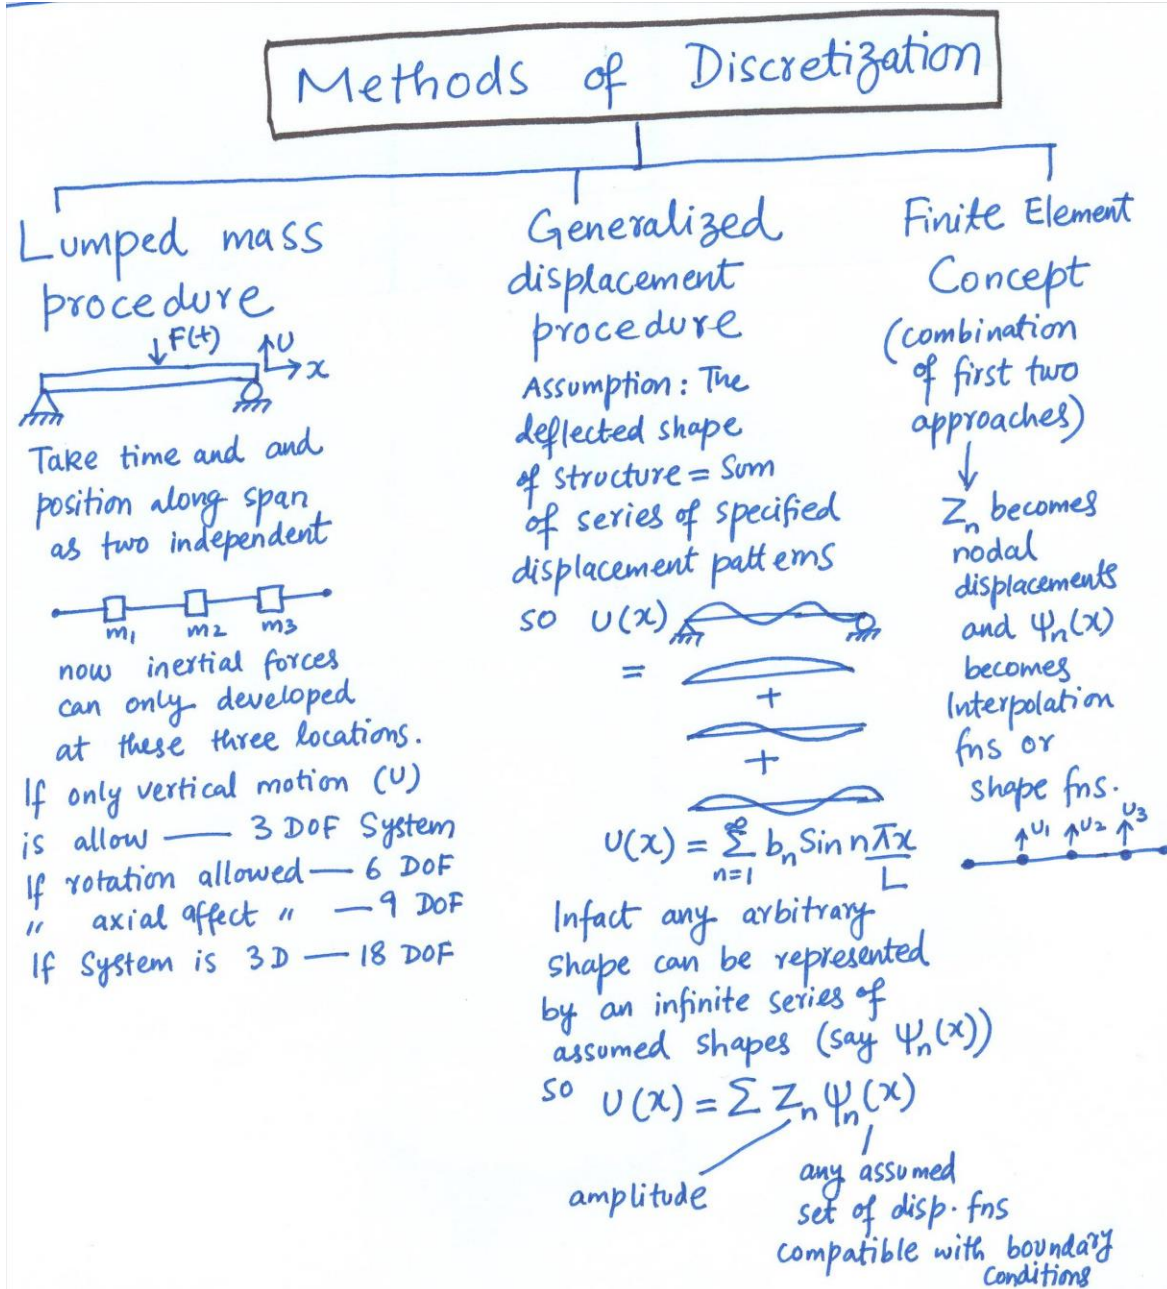 Methods of Discretization
Lumped mass
procedure
F(t)
U
x
Take time and and
position along span
as two independent
m1 m2 m3
now inertial forces
can only developed
at these three locations.
If only vertical motion (U)
is allow — 3 DOF System
If rotation allowed — 6 DOF
" axial affect " — 9 DOF
If System is 3D — 18 DOF
Generalized
displacement
procedure
Assumption: The
deflected shape
of structure = Sum
of series of specified
displacement patterns
so U(x)
=
+
+
U(x) = ∑_{n=1}^{∞} bn Sin nπx/L
Infact any arbitrary
shape can be represented
by an infinite series of
assumed shapes (say Ψn(x))
so U(x) = Σ Zn Ψn(x)
amplitude
any assumed
set of disp. fns
compatible with boundary
conditions
Finite Element
Concept
(combination
of first two
approaches)
↓
Zn becomes
nodal
displacements
and Ψn(x)
becomes
Interpolation
fns or
shape fns.
U1 U2 U3